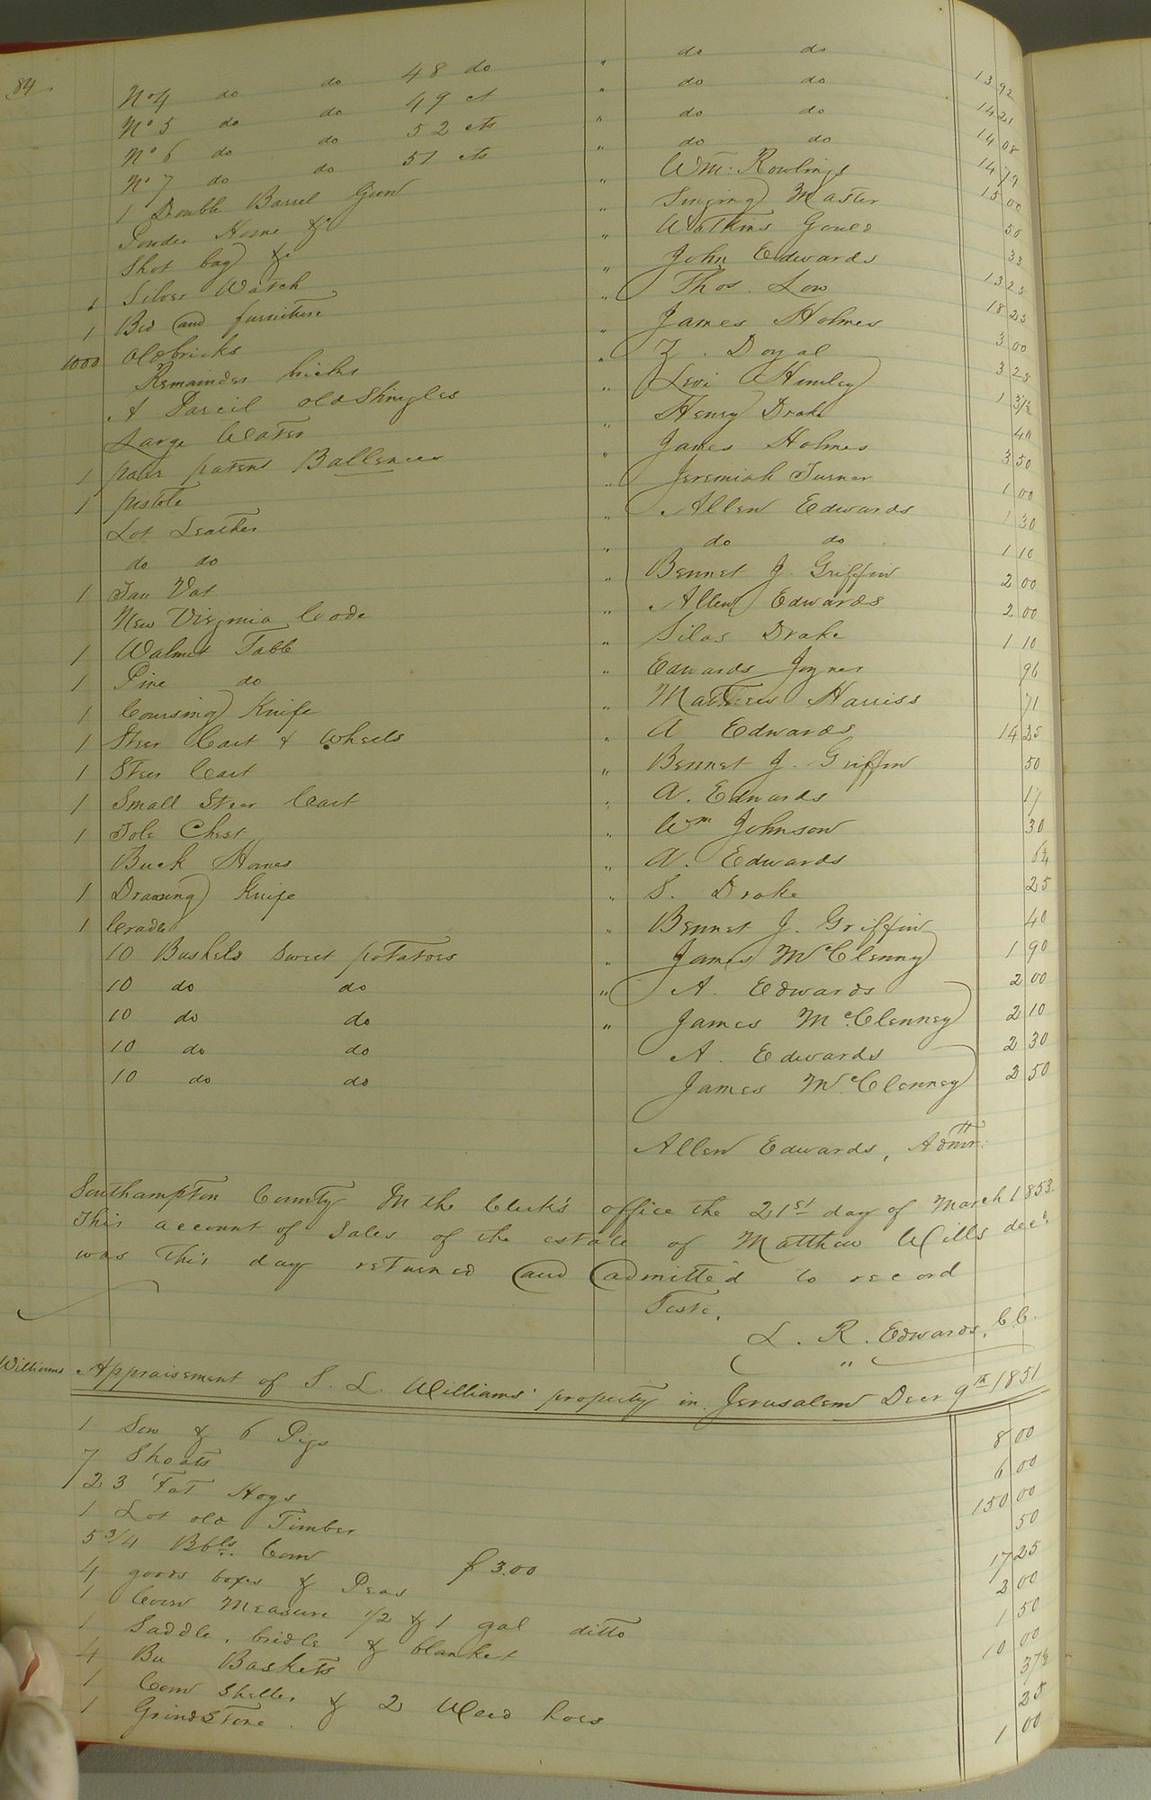 84
Nº 4 do do 48 do " do do 13 92
Nº 5 do do 49 ct " do do 14 21
Nº 6 do do 52 cts " do do 14 08
Nº 7 do do 51 cts " do do 14 79
1 Double Barrel Gun " Wm: Rowlings 15 00
Powder Horne &c " Singing Master 50
Shot bag &c " Watkins 33
1 Silver Watch " John Edwards 13 25
1 Bed and furniture " Thos. Low 18 25
1000 Old bricks " James Holmes 3 00
Remainder bricks " Z. Doyal 3 25
A Parcil old Shingles " Levi 1 31½
Large Water " Henry Drake 40
1 pair patent Ballences " James Holmes 3 50
1 pistole " Jeremiah Turner 1 00
Lot Leather " Allen Edwards 1 30
do do " do do 1 10
1 Tan Vat " Bennet J. Griffin 2 00
New Virginia Code " Allen Edwards 2 00
1 Walnut Table " Silas Drake 1 10
1 Pine do " Edwards Joyner 96
1 Coursing Knife " Mathews Harriss 71
1 Steer Cart & Wheels " A Edwards 14 25
1 Steer Cart " Bennet J. Griffin 50
1 Small Steer Cart " A. Edwards 17
1 Tole Chest " Wm Johnson 30
Buck Hames " A. Edwards 6¼
1 Drawing Knife " S. Drake 25
1 Cradle " Bennet J. Griffin 40
10 Bushels Sweet potatoes " James McClenny 1 90
10 do do " A. Edwards 2 00
10 do do " James McClenney 2 10
10 do do A. Edwards 2 30
10 do do James McClenney 2 50
Allen Edwards, Admr:
Southampton County In the Clerk's office the 21st day of March 1853.
This account of Sales of the estate of Matthew Wills decd
was this day returned and admitted to record
Teste,
L. R. Edwards, C.C.
Williams Appraisement of S. L. Williams' property in Jerusalem Decr 9th 1851
1 Sow & 6 Pigs 8 00
7 Shoats 6 00
23 Fat Hogs 150 00
1 Lot old Timber 50
5 3/4 Bbls. Corn $3.00 17 25
4 goods boxes & Peas 2 00
1 Corn Measure 1/2 & 1 gal ditto 1 50
1 Saddle, bridle & blanket 10 00
4 Bu Baskets 37½
1 Corn Sheller & 2 Weed hoes 25
1 Grindstone. 1 00